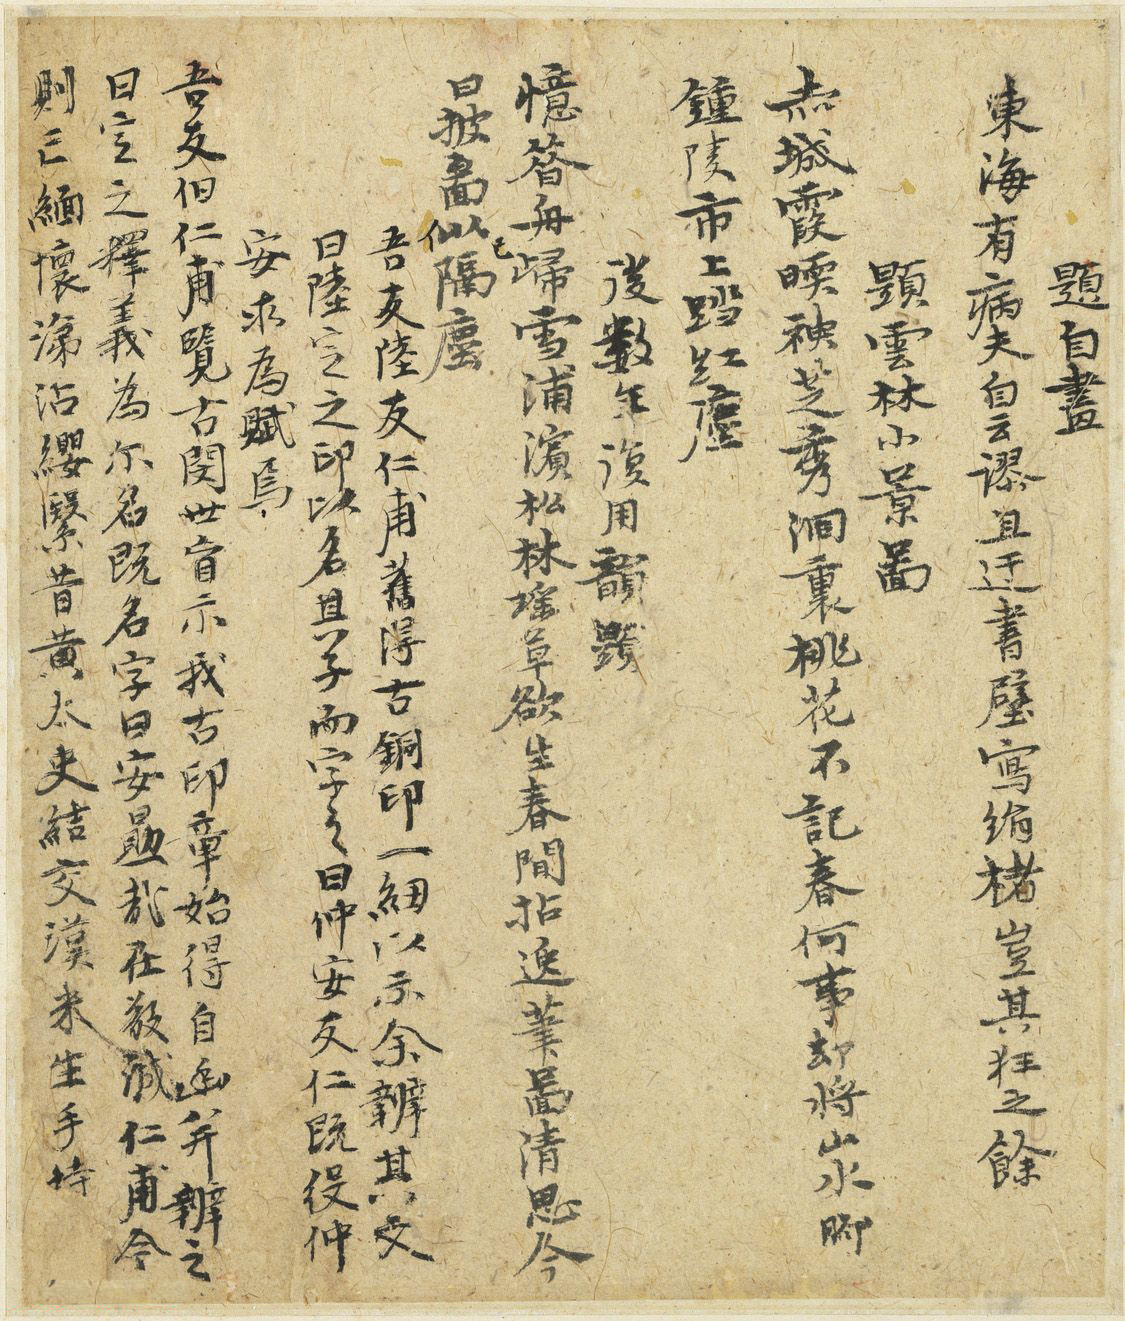 題自畫
東海有病夫自云謬且迂書壁寫絹楮豈其狂之餘
題雲林小景啚
赤城霞暎袂芝秀澗裏桃花不記春何事却將山水脚
鍾陵市上踏紅塵
後數年復用韻題
憶昝舟歸雪浦濱松林瑤草欲生春閒拈逸筆啚清思今
日披啚似隔塵
已
吾友陸友仁甫舊得古銅印一紐以示余辨其文
曰陸定之印以名且子而字之曰仲安友仁既役仲
安求為賦焉
吾友伯仁甫覽古閔世盲示我古印章始得自幽并辨之
曰定之釋義為尓名既名字曰安勗哉在敬誠仁甫今
則亡緬懷涕沾纓緊昔黃太史結交漢米生手持